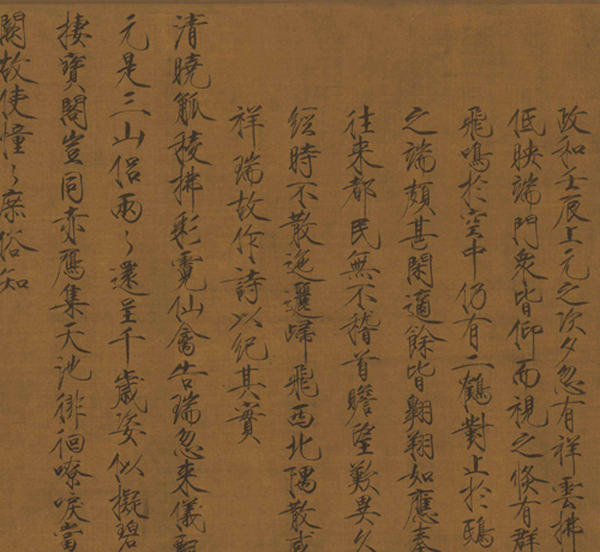 政和壬辰上元之次夕忽有祥雲拂
低映端門眾皆仰而視之倏有群
飛鳴於空中仍有二鶴對止於鴟
之端頗甚閑適餘皆翱翔如應奏
往來都民無不稽首瞻望歎異久
經時不散迤邐歸飛西北隅散感
祥瑞故作詩以紀其實
清曉觚稜拂彩霓仙禽告瑞忽來儀飄
元是三山侶兩々還呈千歲姿似擬碧
棲寶閣豈同赤鴈集天池徘徊嘹唳當
闕故使憧々庶俗知